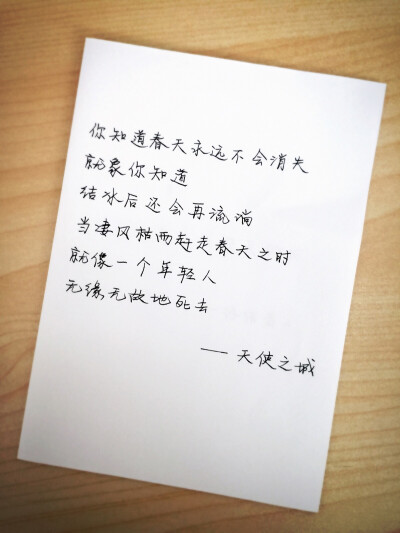 你知道春天永远不会消失
就象你知道
结冰后还会再流淌
当凄风枯雨赶走春天之时
就像一个年轻人
无缘无故地死去
—— 天使之城